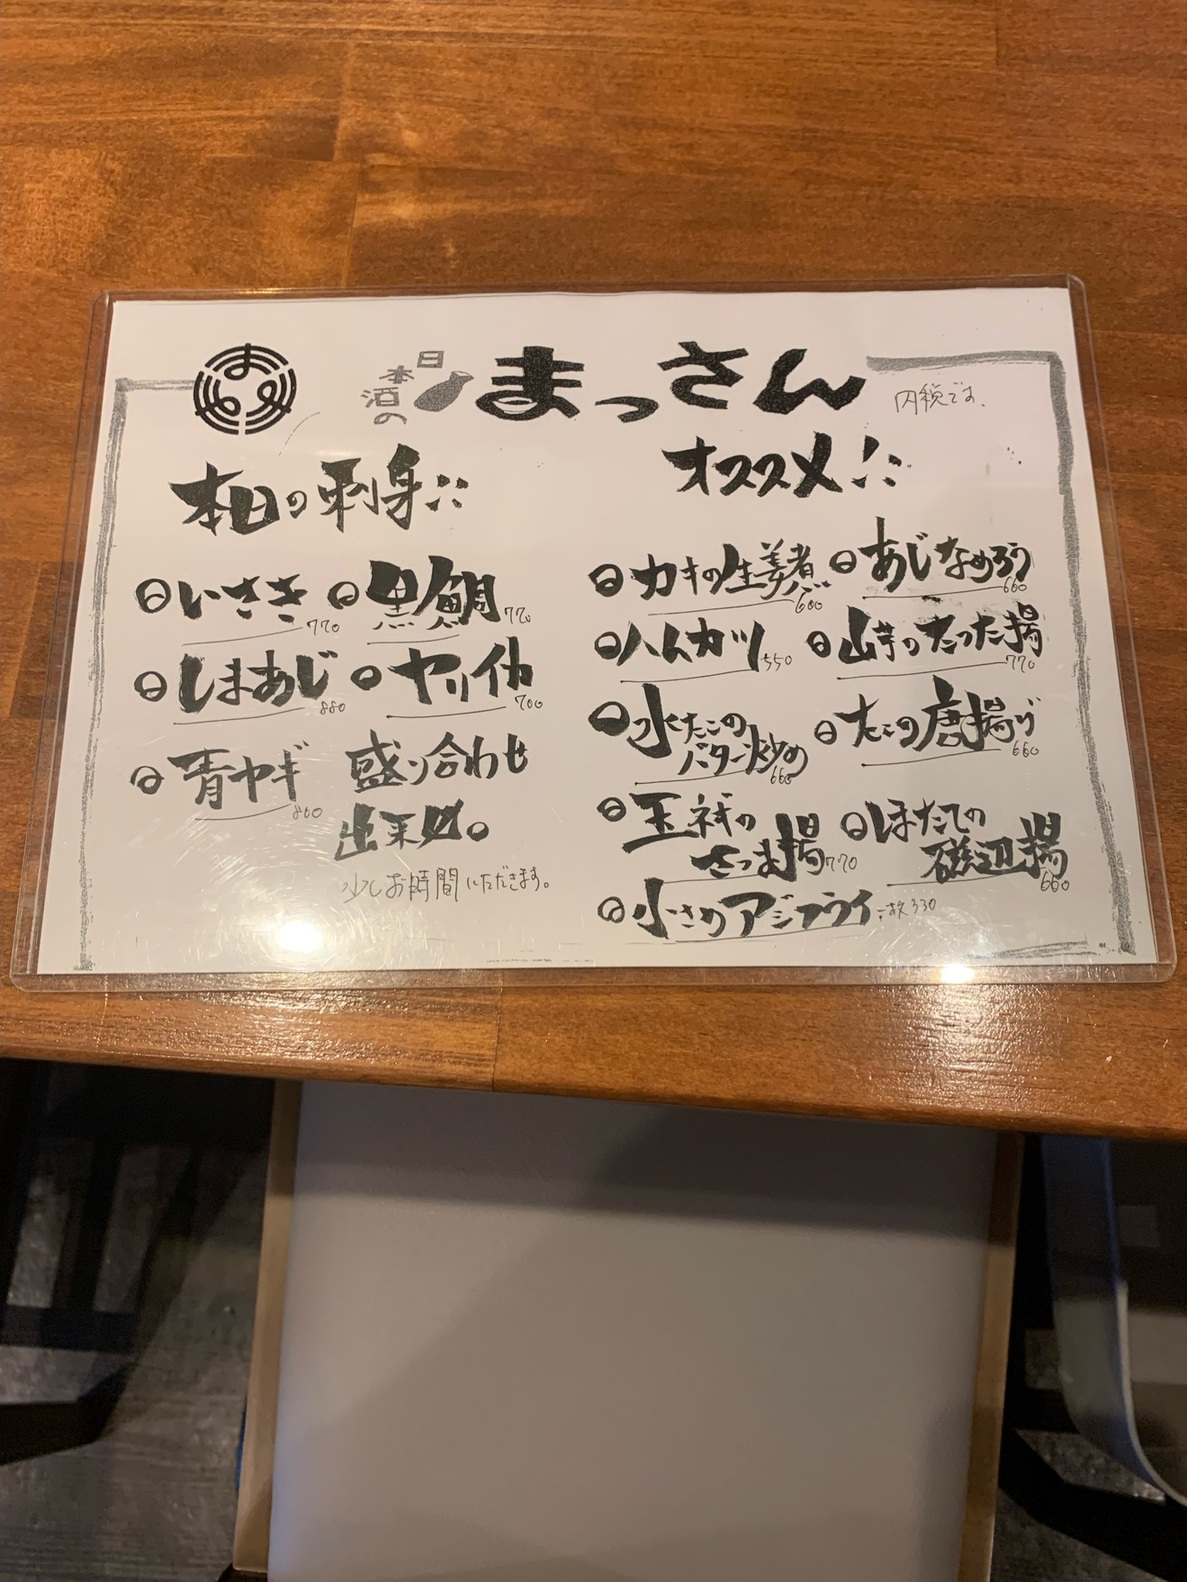 日本酒の まっさん
内税です。
本日の刺身!!
いさき 770
黒鯛 770
しまあじ 880
ヤリイカ 700
青ヤギ 860
盛り合わせ
出来〼。
少しお時間いただきます。
オススメ!!
カキの生姜煮 600
あじなめろう 660
ハムカツ 550
山芋のたつた揚 770
水たこの
バター炒め 660
たこの唐揚げ 660
玉ネギの
さつま揚 770
ほたての
磯辺揚 660
小さめアジフライ 二枚 330